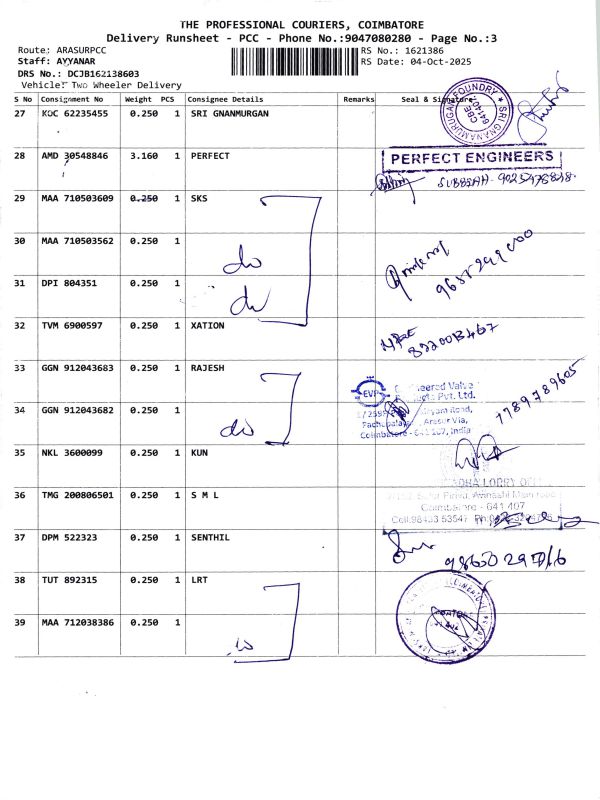 THE PROFESSIONAL COURIERS, COIMBATORE
Delivery Runsheet - PCC - Phone No.:9047080280 - Page No.:3
Route: ARASURPCC RS No.: 1621386
Staff: AYYANAR RS Date: 04-Oct-2025
DRS No.: DCJB162138603
Vehicle: Two Wheeler Delivery
S No Consignment No Weight PCS Consignee Details Remarks Seal & Signature
27 KOC 62235455 0.250 1 SRI GNANMURGAN
SRI GNANAMURUGAN FOUNDRY CBE 641407
28 AMD 30548846 3.160 1 PERFECT
PERFECT ENGINEERS
29 MAA 710503609 0.250 1 SKS
30 MAA 710503562 0.250 1
do
31 DPI 804351 0.250 1
do
32 TVM 6900597 0.250 1 XATION
33 GGN 912043683 0.250 1 RAJESH
EVP Valve
Pvt. Ltd.
7789789605
34 GGN 912043682 0.250 1
do
Road,
Arasur Via,
Coimbatore - 641 107, India
35 NKL 3600099 0.250 1 KUN
LORRY
36 TMG 200806501 0.250 1 S M L
Avinashi Main road
Coimbatore - 641 407
Cell:98433 53547 Ph:
37 DPM 522323 0.250 1 SENTHIL
38 TUT 892315 0.250 1 LRT
39 MAA 712038386 0.250 1
do